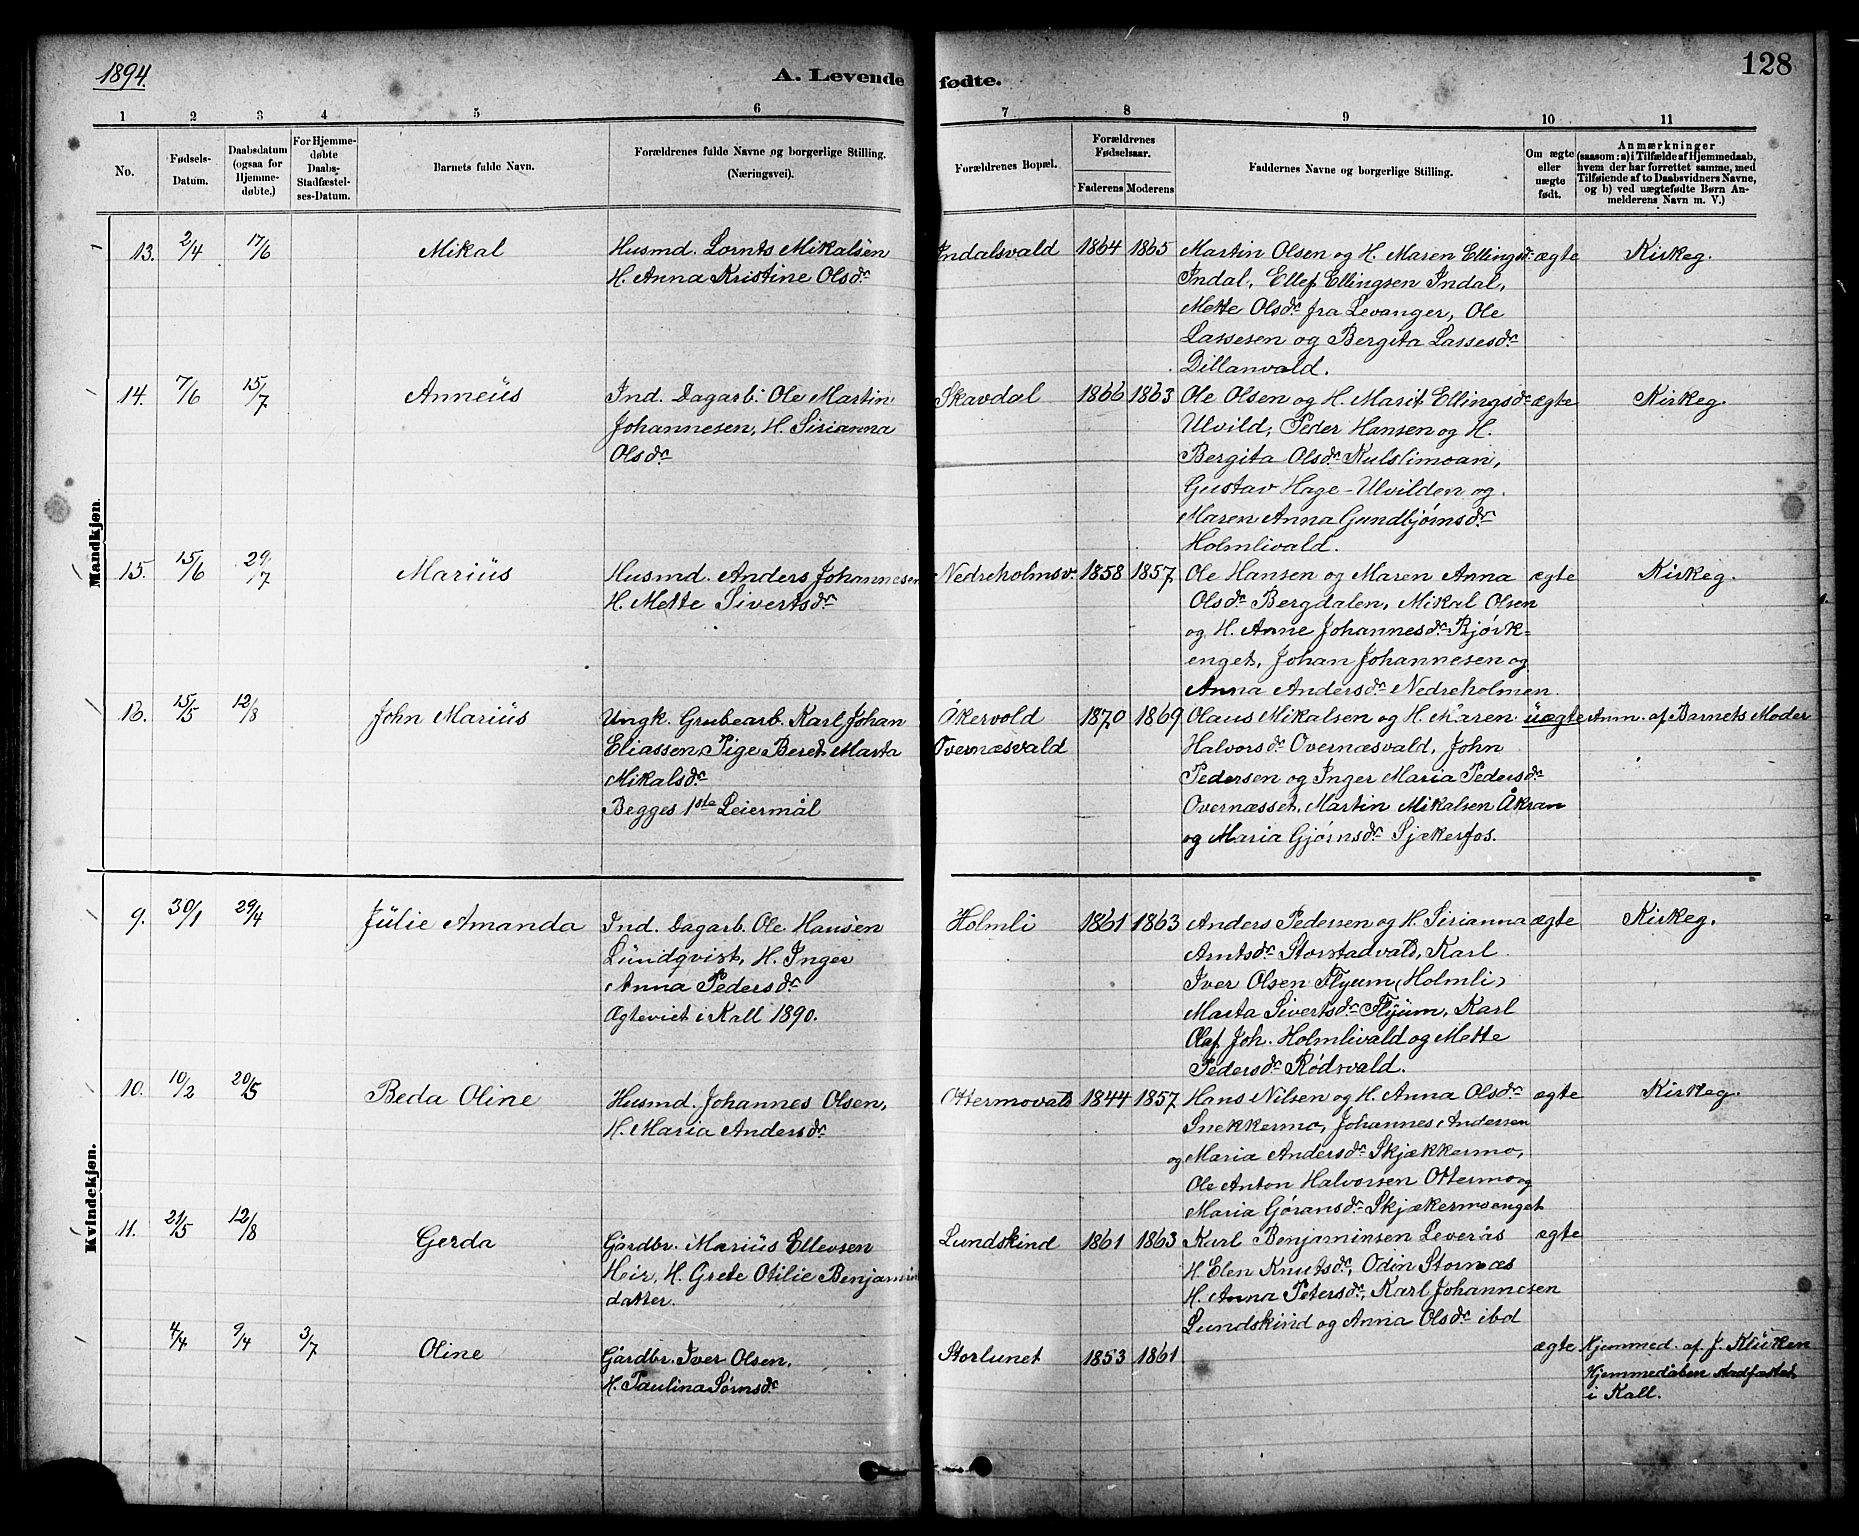 1894.
A. Levende fødte.
128
1 2 3 4 5 6 7 8 9 10 11
No.
Fødsels-
Datum.
Daabsdatum
(ogsaa for
Hjemme-
døbte.)
For Hjemme-
døbte
Daabs-
Stadfæstel-
ses-Datum.
Barnets fulde Navn.
Forældrenes fulde Navne og borgerlige Stilling.
(Næringsvei.)
Forældrenes Bopæl.
Forældrenes
Fødselsaar.
Faderens Moderens
Faddernes Navne og borgerlige Stilling.
Om ægte
eller
uægte
født.
Anmærkninger
(saasom: a) i Tilfælde af Hjemmedaab,
hvem der har forrettet samme, med
Tilføiende af to Daabsvidners Navne,
og b) ved uægtefødte Børn An-
melderens Navn m. V.)
Mandkjøn.
13. 2/4 17/6 Mikal
Husmd. Lornts Mikalsen
H. Anna Kristine Olsdr
Indalsvald 1864 1865
Martin Olsen og H. Maren Ellingsdr
Indal, Ellef Ellingsen Indal,
Mette Olsdr fra Levanger, Ole
Lassesen og Bergita Lassesdr
Dillanvald.
ægte Kirkeg.
14. 7/6 15/7 Anneüs
Ind. Dagarb. Ole Martin
Johannesen, H. Sirianna
Olsdr
Skavdal 1866 1863
Ole Olsen og H. Marit Ellingsdr
Ulvild, Peder Hansen og H.
Bergita Olsdr Kulslimoan,
Gustav Hage-Ulvilden og
Maren Anna Gundbjørnsdr
Holmlivald.
ægte Kirkeg.
15. 15/6 29/7 Mariüs
Husmd. Anders Johannesen
H. Mette Sivertsdr
Nedreholmsv. 1858 1857
Ole Hansen og Maren Anna
Olsdr Bergdalen, Mikal Olsen
og H. Anne Johannesdr Bjørk-
enget, Johan Johannesen og
Anna Andersdr Nedreholmen.
ægte Kirkeg.
16. 15/5 12/8 John Mariüs
Ungk. Grubearb. Karl Johan
Eliassen, Pige Beret Marta
Mikalsdr
Begges 1ste Leiermål
Åkervold
Overnæsvald
1870 1869
Olaus Mikalsen og H. Maren
Halvorsdr Overnæsvald, John
Pedersen og Inger Maria Pedersdr
Overnæsset, Martin Mikalsen Åkran
og Maria Gjørnsdr Sjækerfos.
üægte Anm. af Barnets Moder
Kvindekjøn.
9. 30/1 29/4 Jülie Amanda
Ind. Dagarb. Ole Hansen
Lündqvist, H. Inger
Anna Pedersdr
Ægteviet i Kall 1890.
Holmli 1861 1863
Anders Pedersen og H. Sirianna
Arntsdr Storstadvald, Karl
Iver Olsen Flyum (Holmli)
Marta Sivertsdr Flyüm, Karl
Olaf Joh. Holmlivald og Mette
Pedersdr Rødsvald.
ægte Kirkeg.
10. 10/2 20/5 Beda Oline
Husmd. Johannes Olsen,
H. Maria Andersdr
Ottermovald 1844 1857
Hans Nilsen og H. Anna Olsdr
Snekkermo, Johannes Andersen
og Maria Andersdr Skjækkermo,
Ole Anton Halvorsen Ottermo og
Maria Göransdr Skjækermoenget
ægte Kirkeg.
11. 21/5 12/8 Gerda
Gårdbr. Mariüs Ellevsen
Heir, H. Grete Otilie Benjamin
datter.
Lundskind 1861 1863
Karl Benjaminsen Leverås
H. Elen Knutsdr, Odin Stornæs
H. Anna Petersdr, Karl Johannesen
Lundskind og Anna Olsdr ibd
ægte
4/4 9/4 3/7 Oline
Gårdbr. Iver Olsen,
H. Paulina Sørnsdr
Storlunet 1853 1861
ægte Hjemmed. af J. Klüken
Hjemmedåben stadfæstet
i Kall.